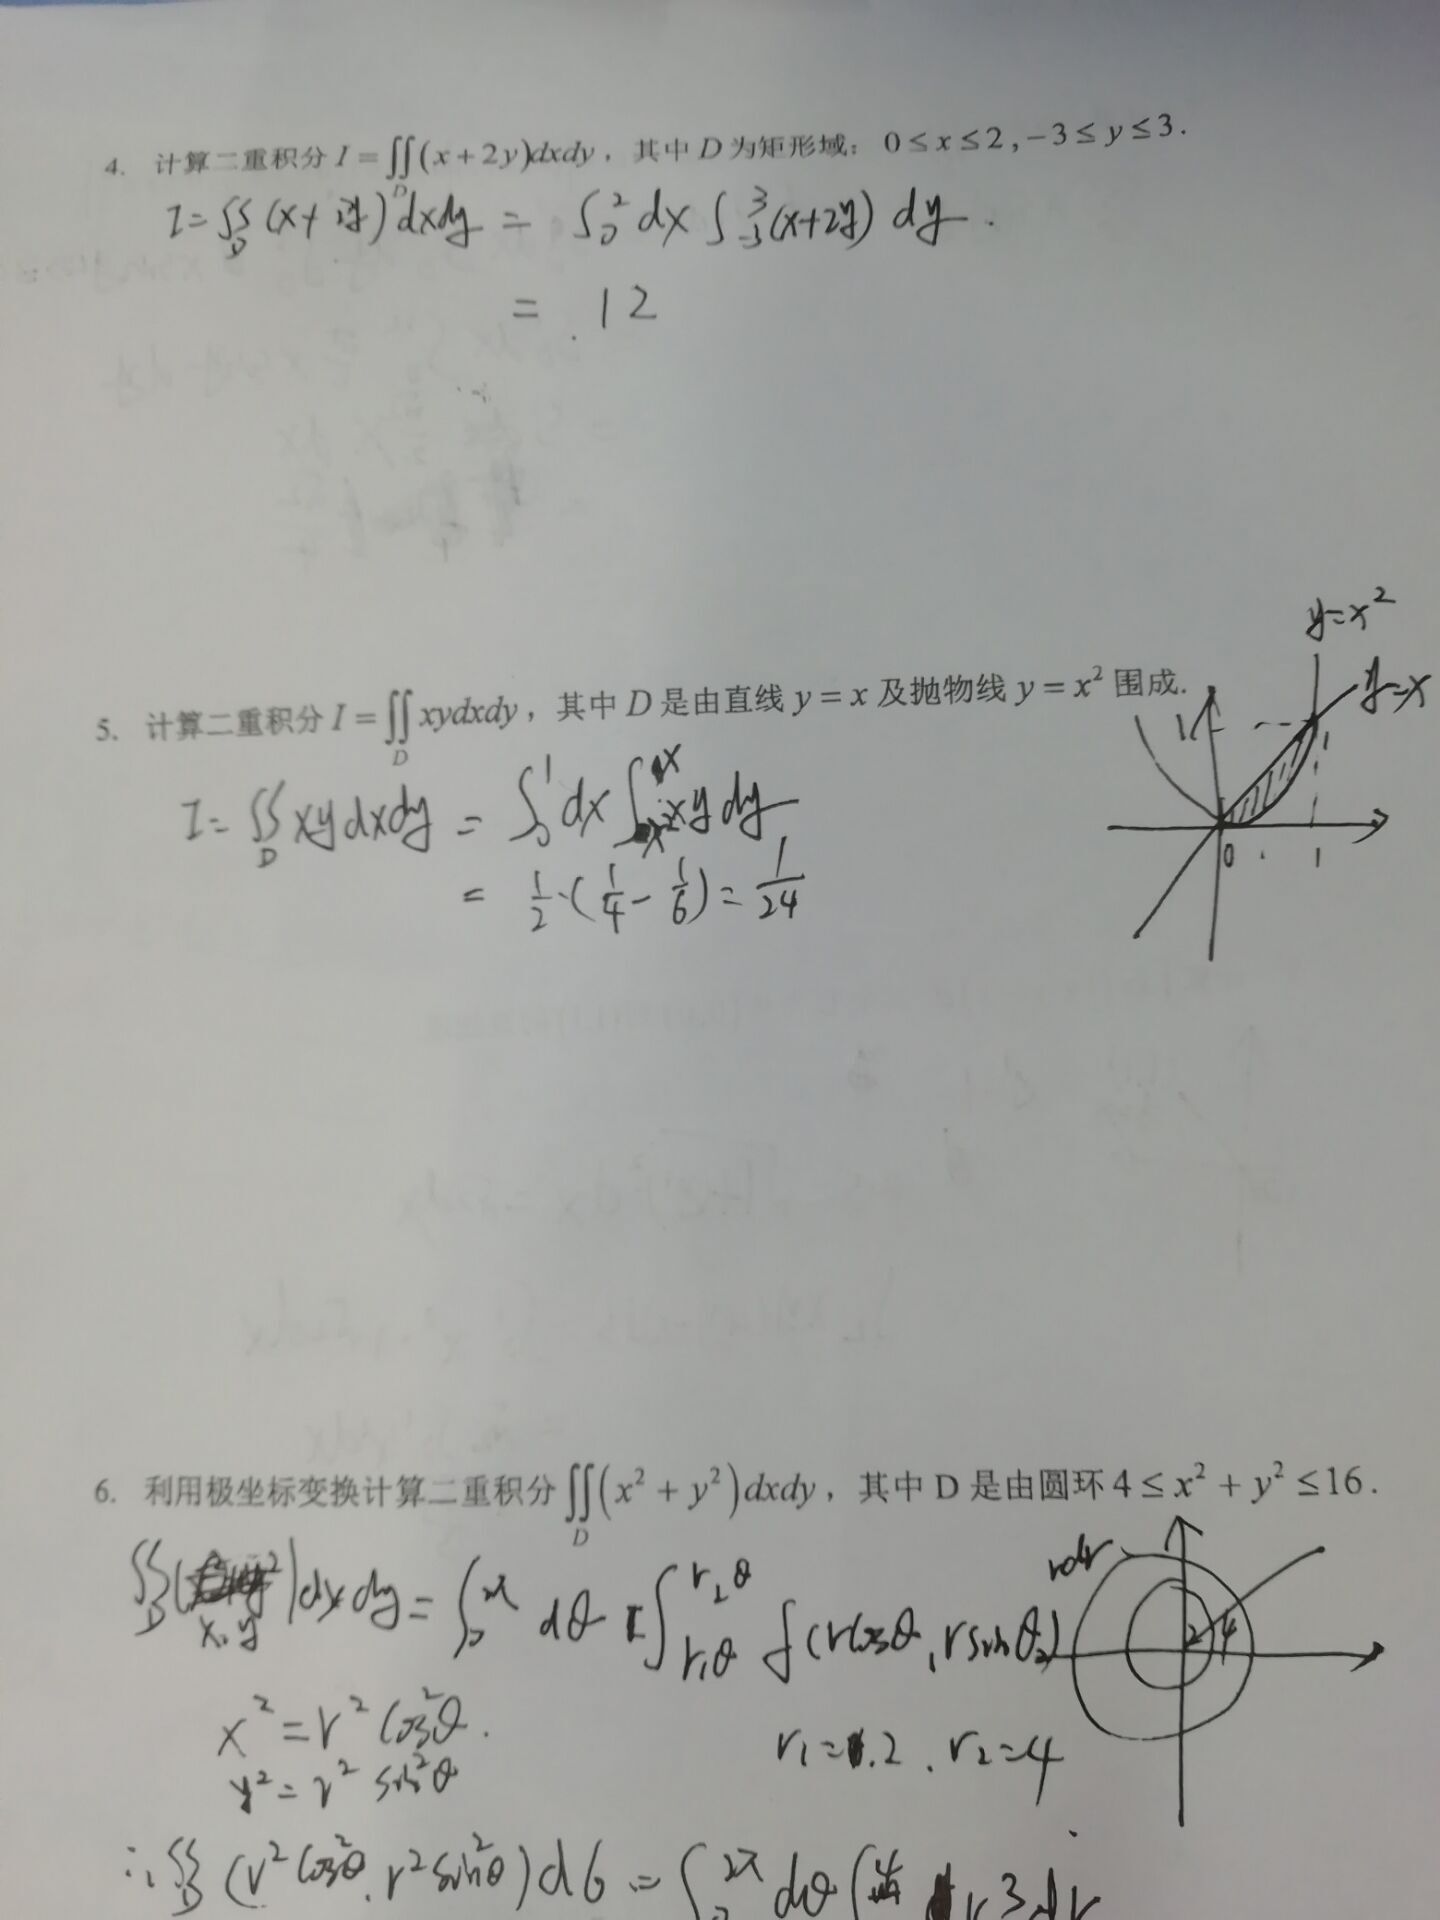 4. 计算二重积分 I = ∬(x + 2y)dxdy, 其中 D 为矩形域: 0 ≤ x ≤ 2, −3 ≤ y ≤ 3.
D
I = ∬ (x + 2y) dxdy = ∫₀² dx ∫₋₃³ (x+2y) dy.
D
= 12
y=x²
5. 计算二重积分 I = ∬ xydxdy, 其中 D 是由直线 y = x 及抛物线 y = x² 围成.
D
y=x
1
1
I = ∬ xy dxdy = ∫₀¹ dx ∫ₓ²ˣ xy dy
D
0 1
= 1/2 · (1/4 − 1/6) = 1/24
6. 利用极坐标变换计算二重积分 ∬(x² + y²)dxdy, 其中 D 是由圆环 4 ≤ x² + y² ≤ 16.
D
∬ ( ) dxdy = dθ ∫ r₂θ r₁θ f(rcosθ, rsinθ) rdr
D x, y
2 4
x² = r² cos²θ.
r₁ = 2. r₂ = 4
y² = r² sin²θ
∴ ∬ (r²cos²θ, r²sin²θ) dσ = ∫ 2π dθ ∫ r³ dr
D